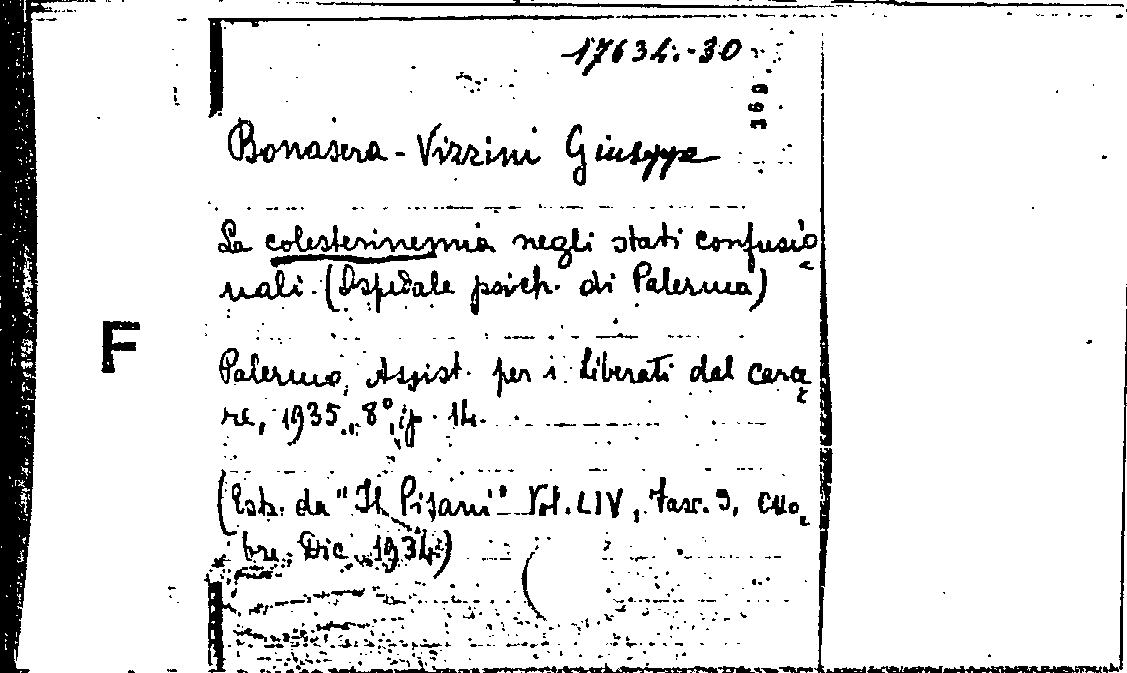 17634.-30
369
Bonasera - Vizzini Giuseppe
La colesterinemia negli stati confusio
nali. (Ospedale psich. di Palermo)
F
Palermo, Assist. per i Liberati dal carce
re, 1935., 8°, p. 14.
(Estr. da "Il Pisani" Vol. LIV, Fasc. 3, Otto
bre. Dic. 1934)